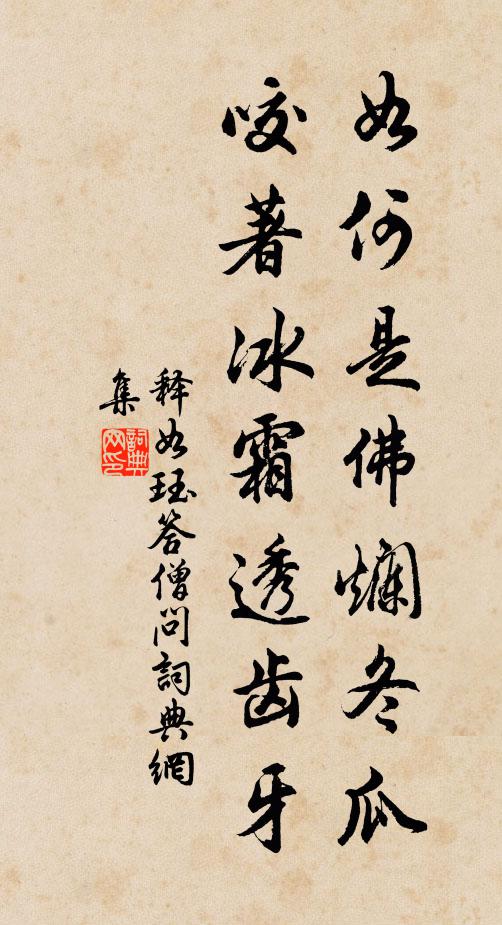 如何是佛爛冬瓜
咬著冰霜透齿牙
释如珏答僧问詞典網
集
詞典
网印